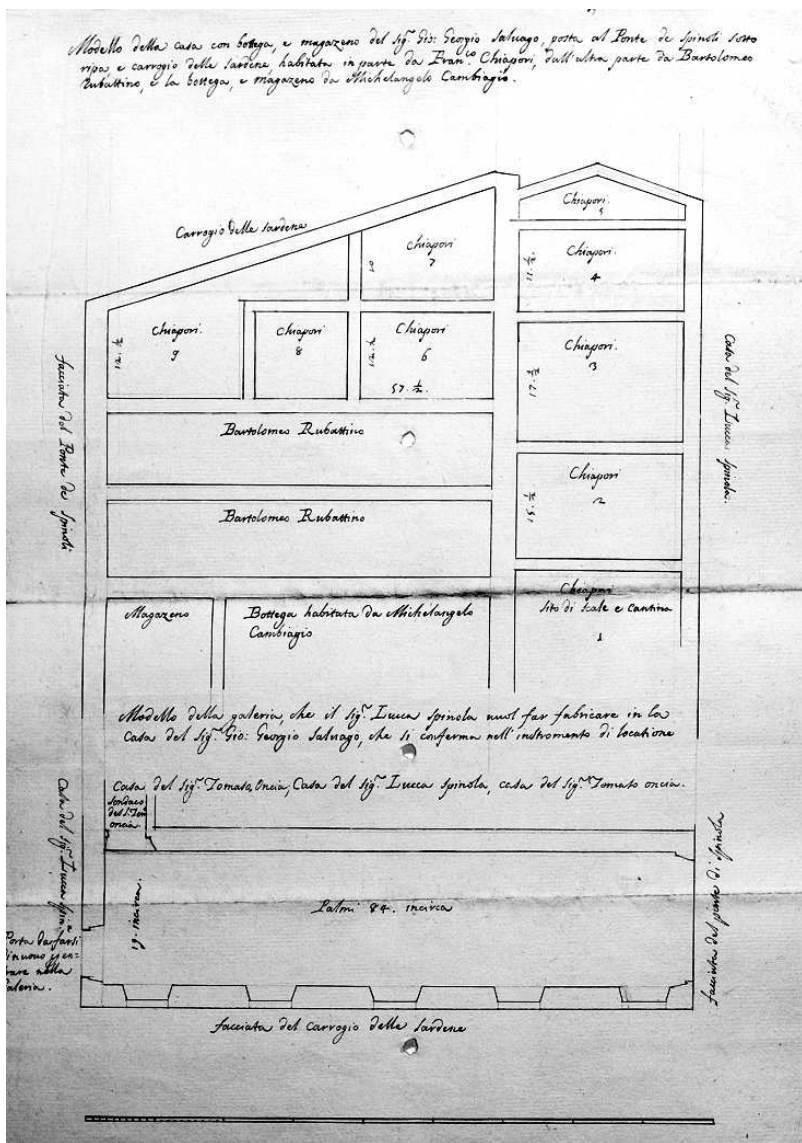 Modello della casa con bottega, e magazeno del sig.r Gio: Georgio Salvago, posta al Ponte de Spinoli sotto
ripa, e carrogio delle sardene habitata in parte da Fran.co Chiapori, dall'altra parte da Bartolomeo
Rubattino, e la bottega, e magazeno da Michelangelo Cambiagio.
Carrogio delle sardene
Chiapori
5
Chiapori
7
10
Chiapori
4
11. ½
Chiapori.
9
12. ½
Chiapori
8
Chiapori
6
12. ½
57. ½
Chiapori.
3
17. ½
facciata del Ponte de Spinoli
Casa del sig.r Lucca Spinola.
Bartolomeo Rubattino
Chiapori
2
15. ½
Bartolomeo Rubattino
Magazeno
Bottega habitata da Michelangelo
Cambiagio
Chiapori
sito di scale e cantina
1
Modello della galeria, che il sig.r Lucca Spinola vuol far fabricare in la
Casa del sig.r Gio: Georgio Salvago, che si conferma nell'instromento di locatione
Casa del sig.r Tomaso Oncia, Casa del sig.r Lucca Spinola, casa del sig.r Tomaso oncia.
fondaco
del S.r Tom
oncia.
Casa del sig.r Lucca Spin.a
19. incirca.
Palmi 84. incirca
facciata del ponte di Spinola
Porta da farsi
di nuovo p en-
trare nella
Galeria.
facciata del Carrogio delle Sardene